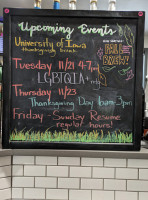 Upcoming Events
University of Iowa
Thanksgiving Break
Tuesday 11/21 4-7
LGBTQIA+
Thursday 11/23
Thanksgiving Day 10am-3pm
Friday - Sunday Resume
regular hours!